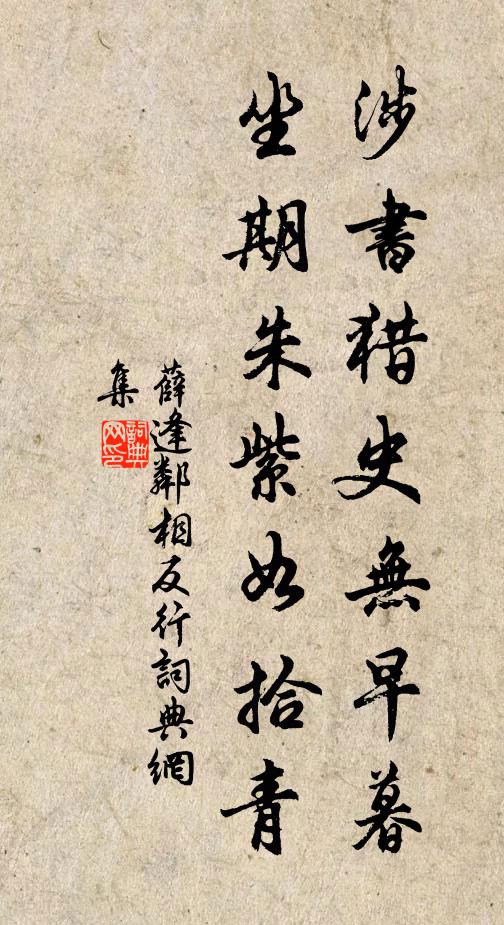 涉書猎史無早暮
坐期朱紫如拾青
薛逢鄰相反行詞典網
集
詞典
网印